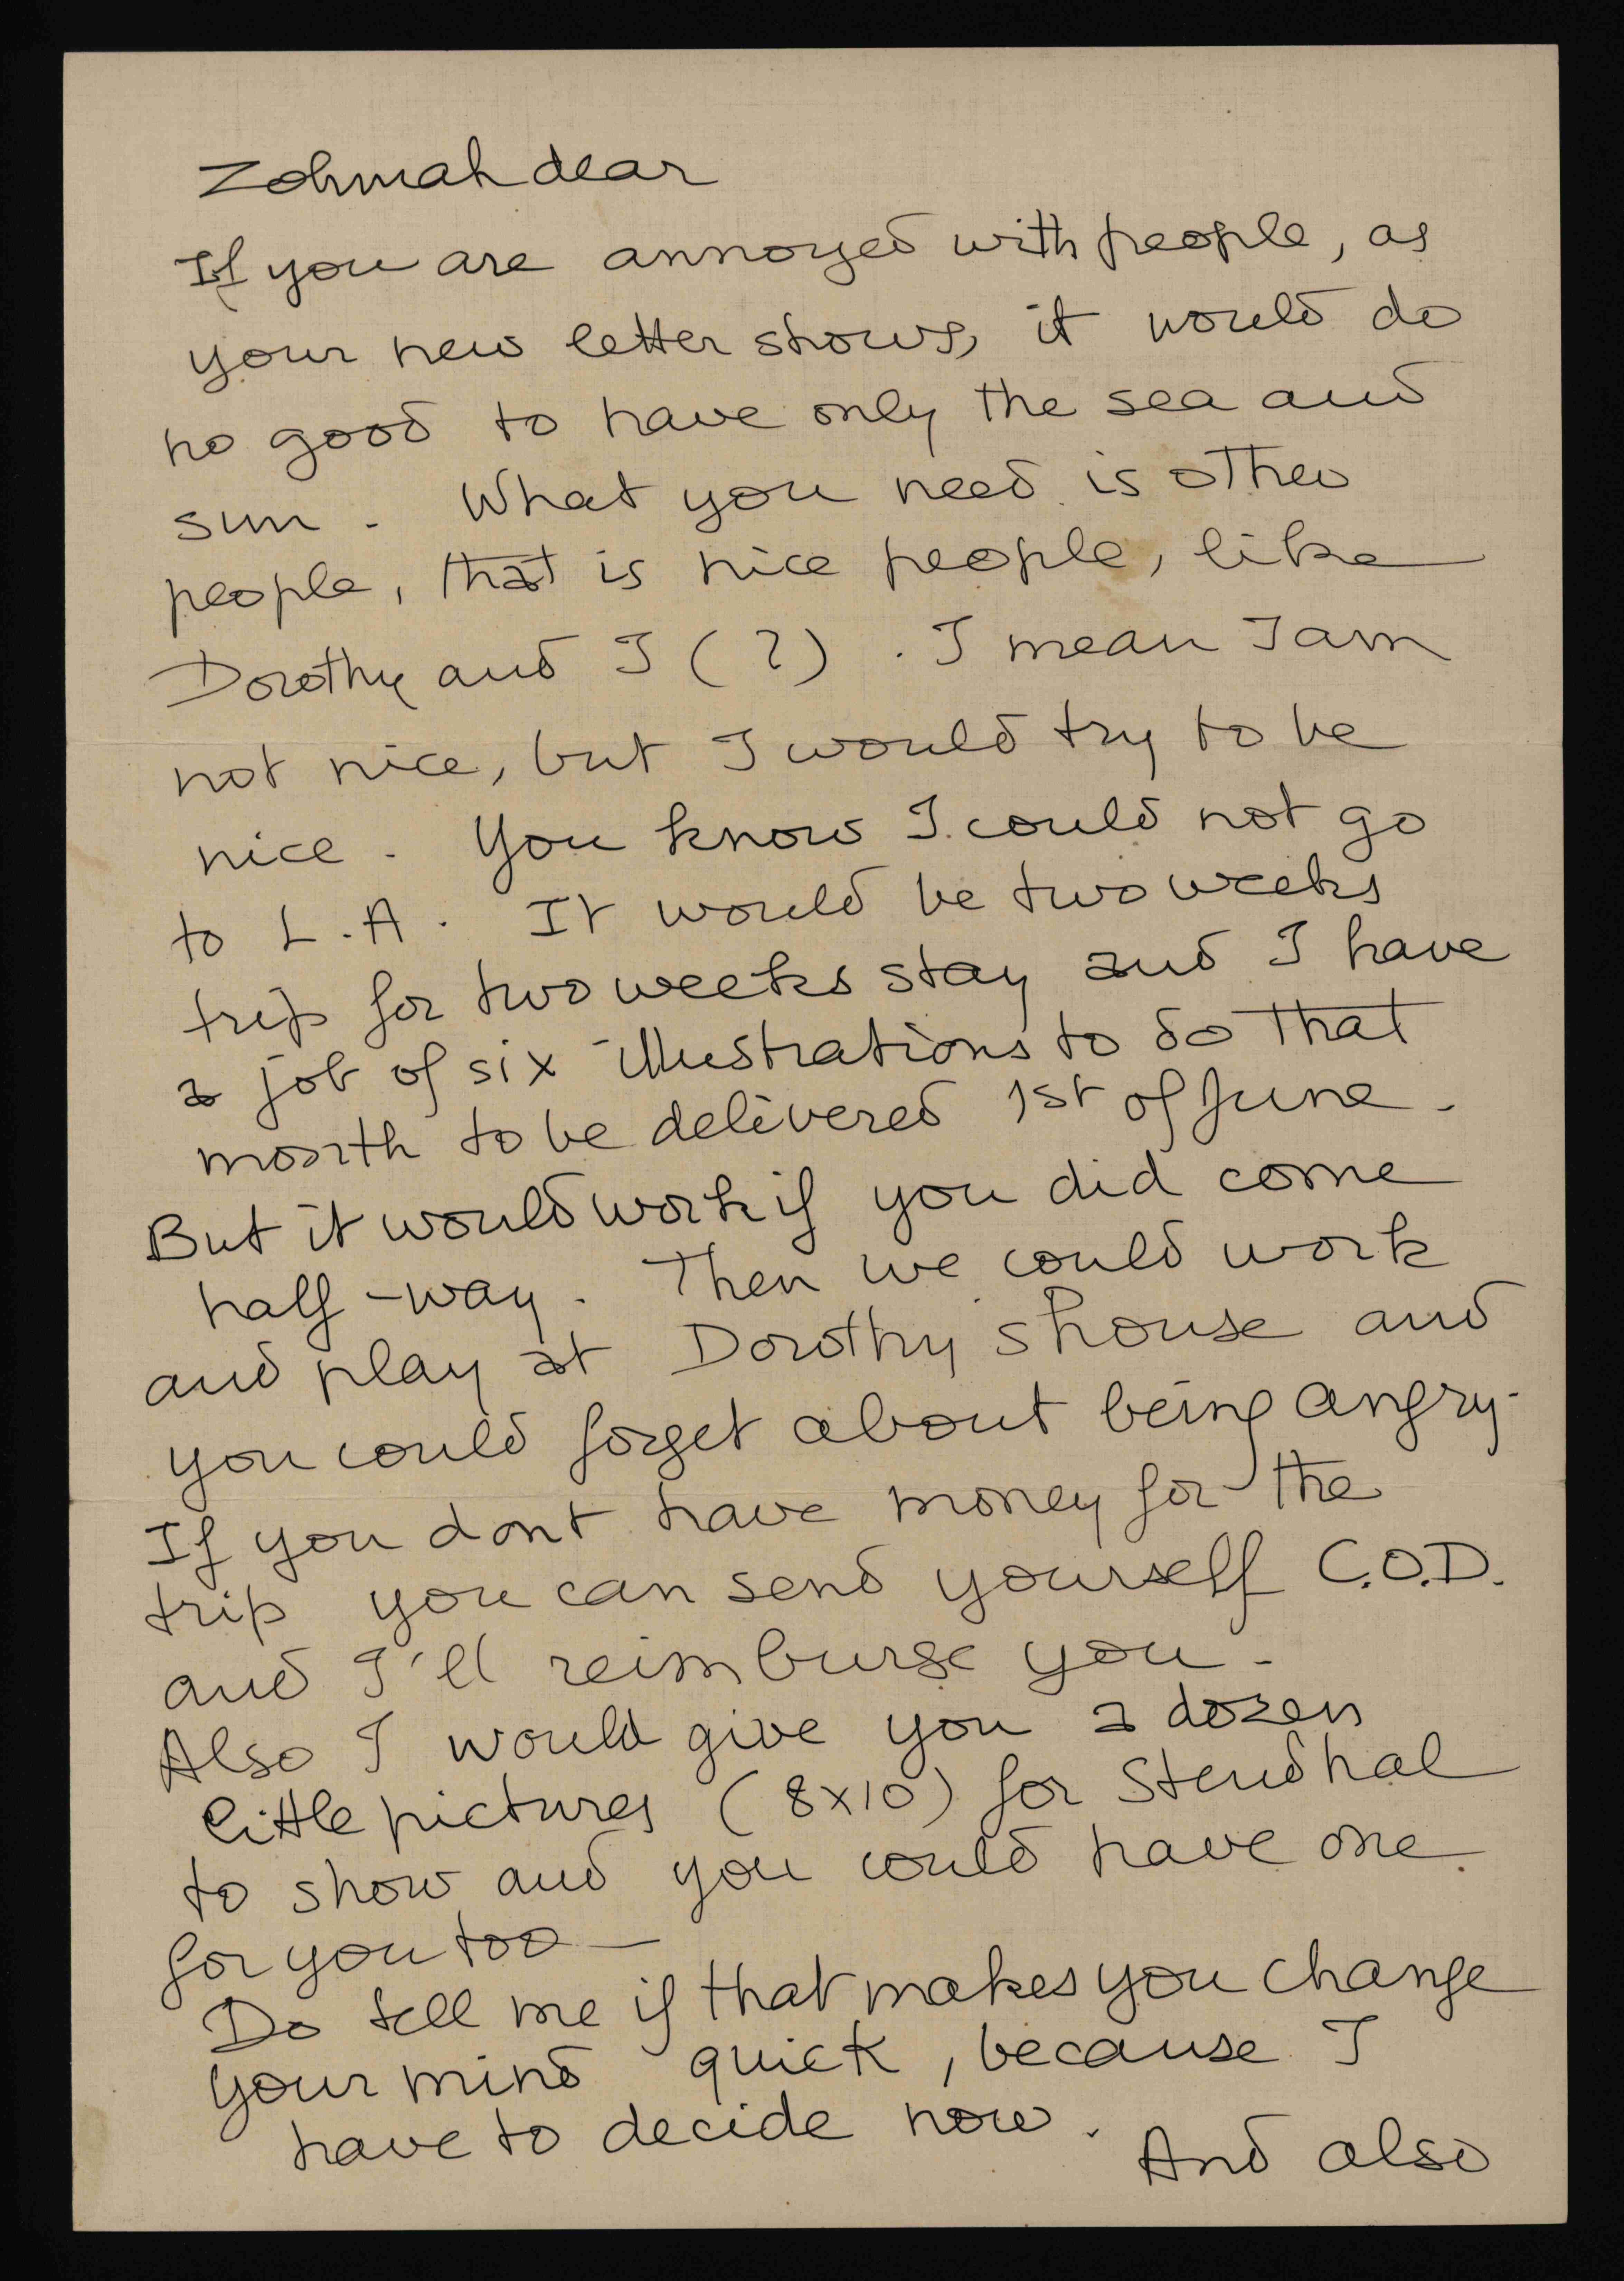 Zohmah dear
If you are annoyed with people, as
your new letter shows, it would do
no good to have only the sea and
sun. What you need is other
people, that is nice people, like
Dorothy and I (?). I mean I am
not nice, but I would try to be
nice. You know I could not go
to L.A. It would be two weeks
trip for two weeks stay and I have
a job of six illustrations to do that
month to be delivered 1st of June.
But it would work if you did come
half-way. Then we could work
and play at Dorothy's house and
you could forget about being angry.
If you dont have money for the
trip you can send yourself C.O.D.
and I'll reimburse you.
Also I would give you a dozen
little pictures (8x10) for Stendhal
to show and you could have one
for you too—
Do tell me if that makes you change
your mind quick, because I
have to decide now. And also